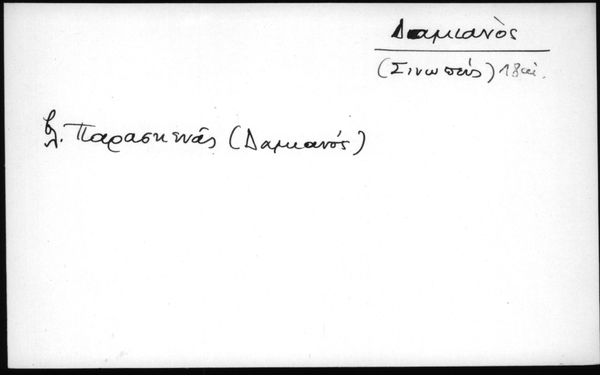 Δαμιανὸς
(Σινωπεύς) 18 αἰ.
βλ. Παρασκευᾶς (Δαμιανός)